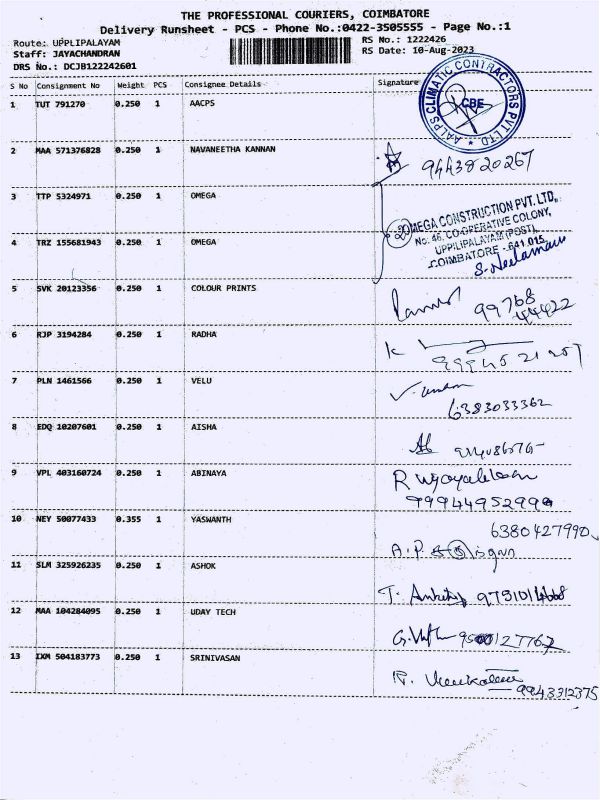 THE PROFESSIONAL COURIERS, COIMBATORE
Delivery Runsheet - PCS - Phone No.:0422-3505555 - Page No.:1
Route: UPPLIPALAYAM
RS No.: 1222426
Staff: JAYACHANDRAN
RS Date: 10-Aug-2023
DRS No.: DCJB122242601
S No Consignment No Weight PCS Consignee Details Signature
1 TUT 791270 0.250 1 AACPS
AALPS CLIMATIC CONTRACTORS PVT LTD.
CBE
2 MAA 571376828 0.250 1 NAVANEETHA KANNAN
9443820267
3 TTP 5324971 0.250 1 OMEGA
OMEGA CONSTRUCTION PVT. LTD.
No. 46, CO-OPERATIVE COLONY,
UPPILIPALAYAM (POST),
COIMBATORE - 641 015
4 TRZ 155681943 0.250 1 OMEGA
5 SVK 20123356 0.250 1 COLOUR PRINTS
99768
44422
6 RJP 3194284 0.250 1 RADHA
7 PLN 1461566 0.250 1 VELU
6383033362
8 EDQ 10207601 0.250 1 AISHA
9 VPL 403160724 0.250 1 ABINAYA
10 NEY 50077433 0.355 1 YASWANTH
6380427990
11 SLM 325926235 0.250 1 ASHOK
12 MAA 104284095 0.250 1 UDAY TECH
13 IXM 504183773 0.250 1 SRINIVASAN
9943312375